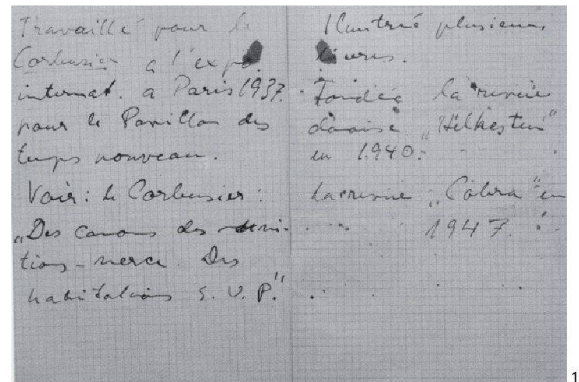 Travaillé pour le
Corbusier a l'expo
internat. a Paris 1937.
pour le Pavillon des
temps nouveau.
Voir: le Corbusier:
„Des canons des muni-
tions - merce. Des
habitations S.V.P."
Ilustrié plusieurs
livres.
Fondée la revue
danoise „Helhesten"
en 1940.
La revue „Cobra" en
1947.
1